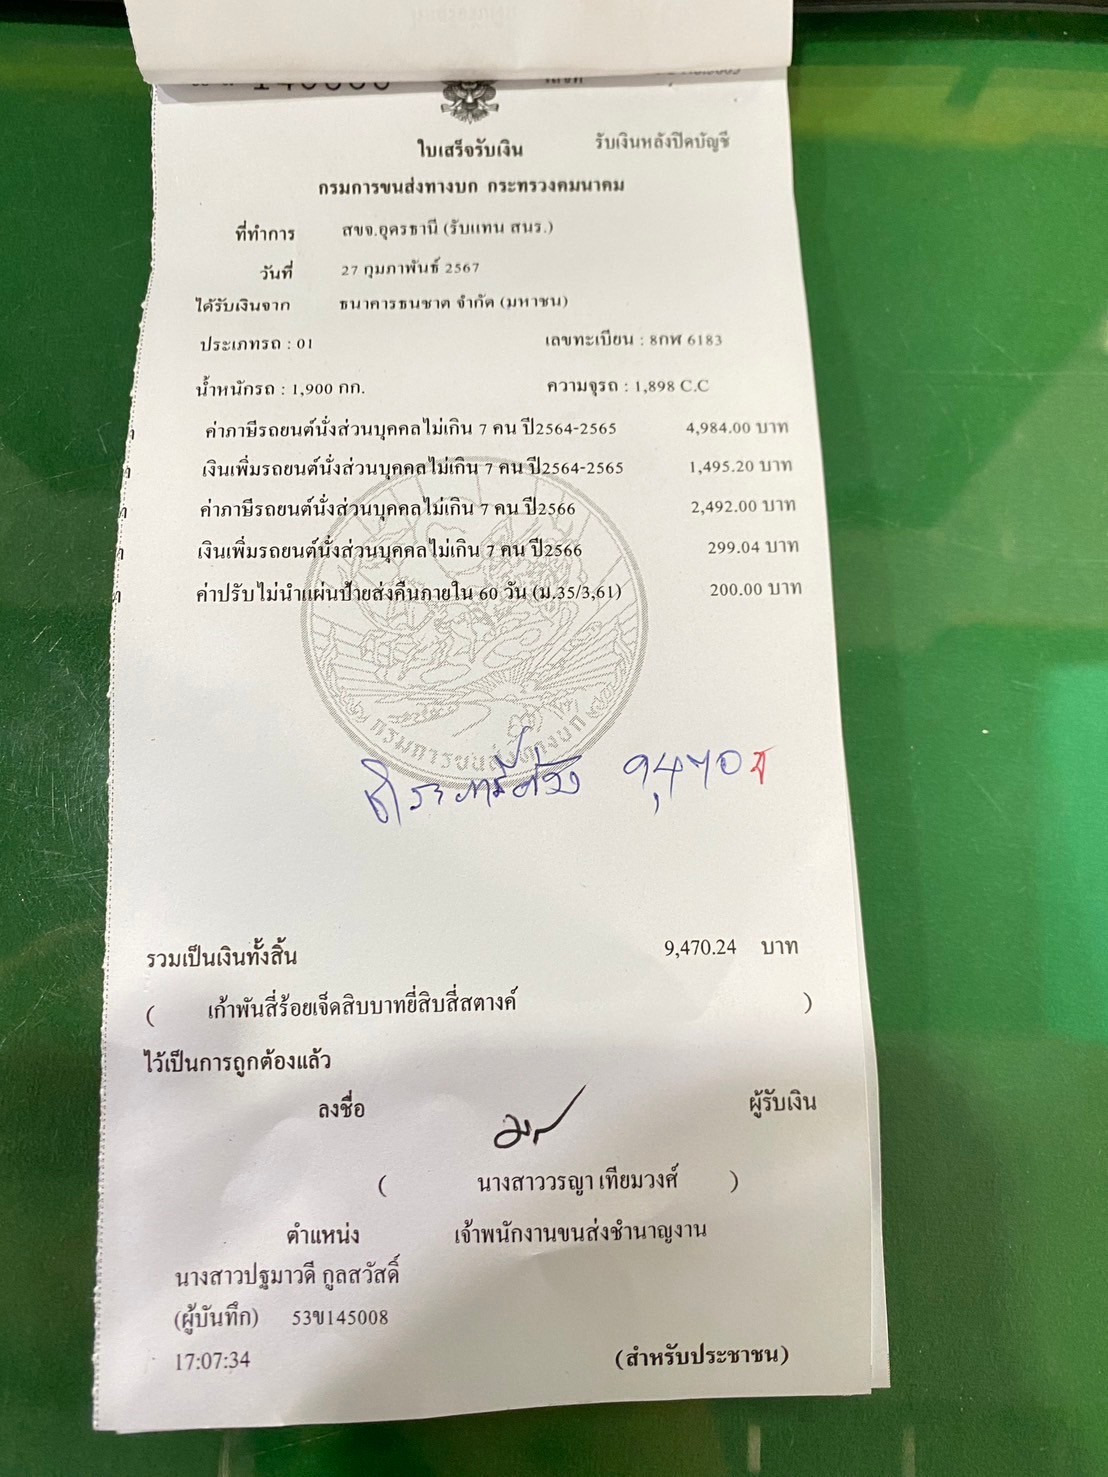 ใบเสร็จรับเงิน รับเงินหลังปิดบัญชี
กรมการขนส่งทางบก กระทรวงคมนาคม
ที่ทำการ สขจ.อุดรธานี (รับแทน สนร.)
วันที่ 27 กุมภาพันธ์ 2567
ได้รับเงินจาก ธนาคารธนชาต จำกัด (มหาชน)
ประเภทรถ : 01 เลขทะเบียน : 8กฬ 6183
น้ำหนักรถ : 1,900 กก. ความจุรถ : 1,898 C.C
ค่าภาษีรถยนต์นั่งส่วนบุคคลไม่เกิน 7 คน ปี2564-2565 4,984.00 บาท
เงินเพิ่มรถยนต์นั่งส่วนบุคคลไม่เกิน 7 คน ปี2564-2565 1,495.20 บาท
ค่าภาษีรถยนต์นั่งส่วนบุคคลไม่เกิน 7 คน ปี2566 2,492.00 บาท
เงินเพิ่มรถยนต์นั่งส่วนบุคคลไม่เกิน 7 คน ปี2566 299.04 บาท
ค่าปรับไม่นำแผ่นป้ายส่งคืนภายใน 60 วัน (ม.35/3,61) 200.00 บาท
กรมการขนส่งทางบก
รวมเป็นเงินทั้งสิ้น 9,470.24 บาท
( เก้าพันสี่ร้อยเจ็ดสิบบาทยี่สิบสี่สตางค์ )
ไว้เป็นการถูกต้องแล้ว
ลงชื่อ ผู้รับเงิน
( นางสาววรญา เทียมวงศ์ )
ตำแหน่ง เจ้าพนักงานขนส่งชำนาญงาน
นางสาวปฐมาวดี กูลสวัสดิ์
(ผู้บันทึก) 53ข145008
17:07:34 (สำหรับประชาชน)